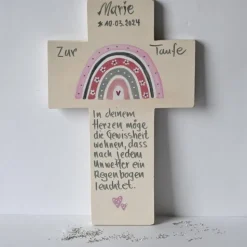 Marie
*10.03.2024
Zur Taufe
In deinem
Herzen möge
die Gewissheit
wohnen, dass
nach jedem
Unwetter ein
Regenbogen
leuchtet.